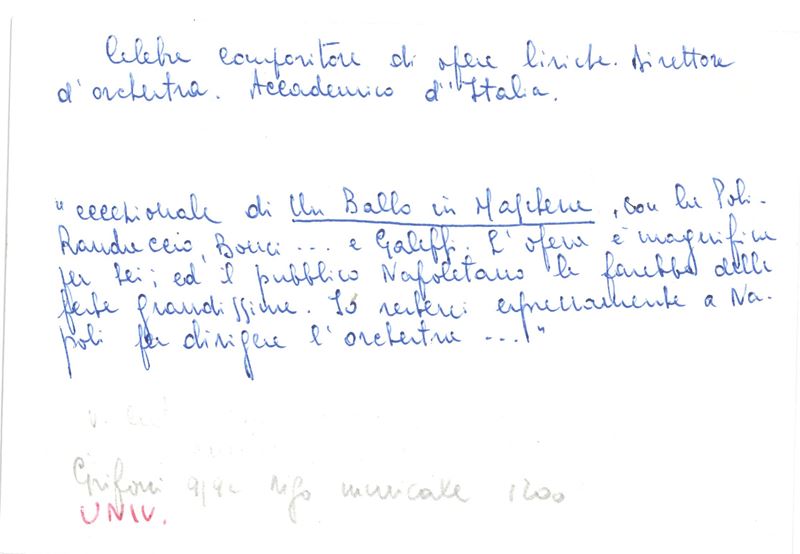 Celebre compositore di opere liriche. Direttore
d'orchestra. Accademico d'Italia.
"eccezionale di Un Ballo in Maschera, con la Poli-
Randaccio, Bonci ... e Galeffi. L'opera è magnifica
per Lei; ed il pubblico Napoletano le farebbe delle
feste grandissime. Io resterei espressamente a Na-
poli per dirigere l'orchestra ...!"
Grifoni 9/92 musicale 1200
UNIV.